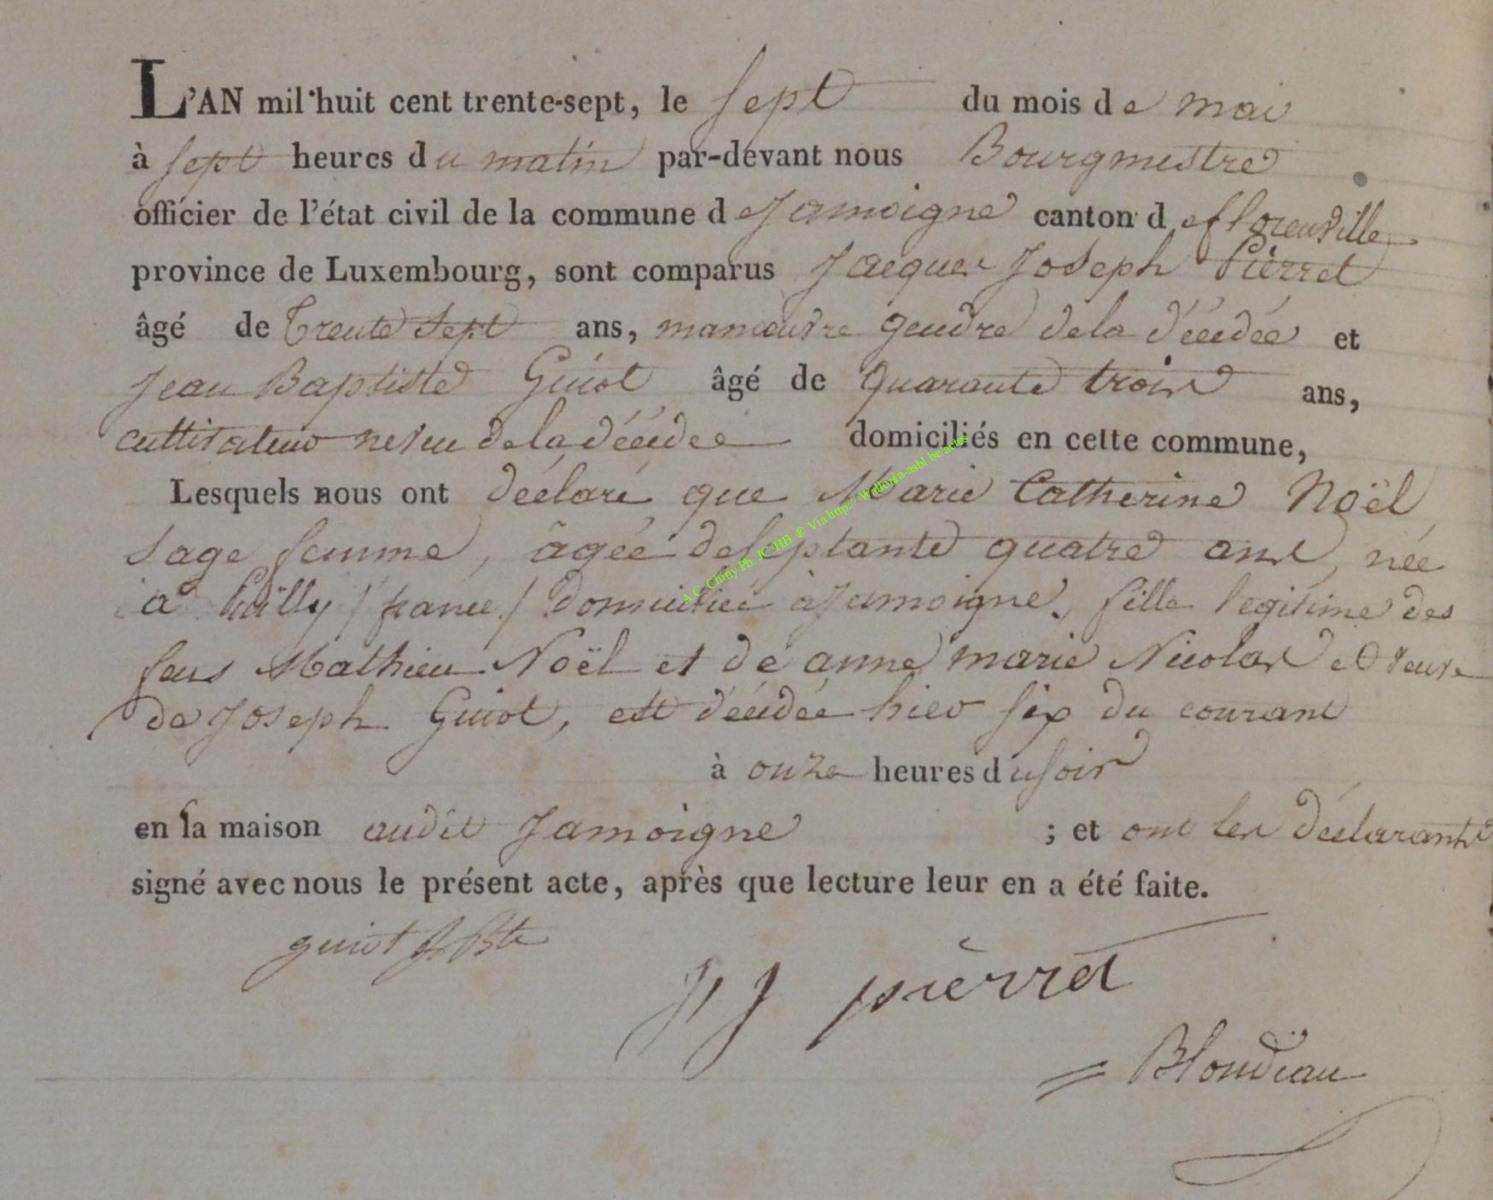 L'AN mil huit cent trente-sept, le sept du mois de mai
à sept heures du matin par-devant nous Bourgmestre
officier de l'état civil de la commune de Jamoigne canton de florenville
province de Luxembourg, sont comparus Jacques Joseph Pièrret
âgé de Trente Sept ans, manœuvre gendre de la décédée et
Jean Baptiste Guiot âgé de quarante trois ans,
cultivateur neveu de la décédée domiciliés en cette commune,
Lesquels nous ont déclaré que Marie Catherine Noël
sage femme, âgée de septante quatre ans, née
à /france/ domiciliée à Jamoigne, fille légitime des
feus Mathieu Noël et de anne marie Nicolas et veuve
de Joseph Guiot, est décédée hier six du courant
à onze heures du soir
en la maison audit Jamoigne ; et ont les déclarants
signé avec nous le présent acte, après que lecture leur en a été faite.
guiot J Bte
J J pièrret
Blondiau